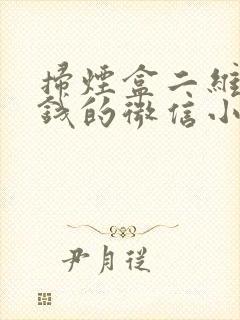 掃煙盒二維
錢的微信小
尹月從